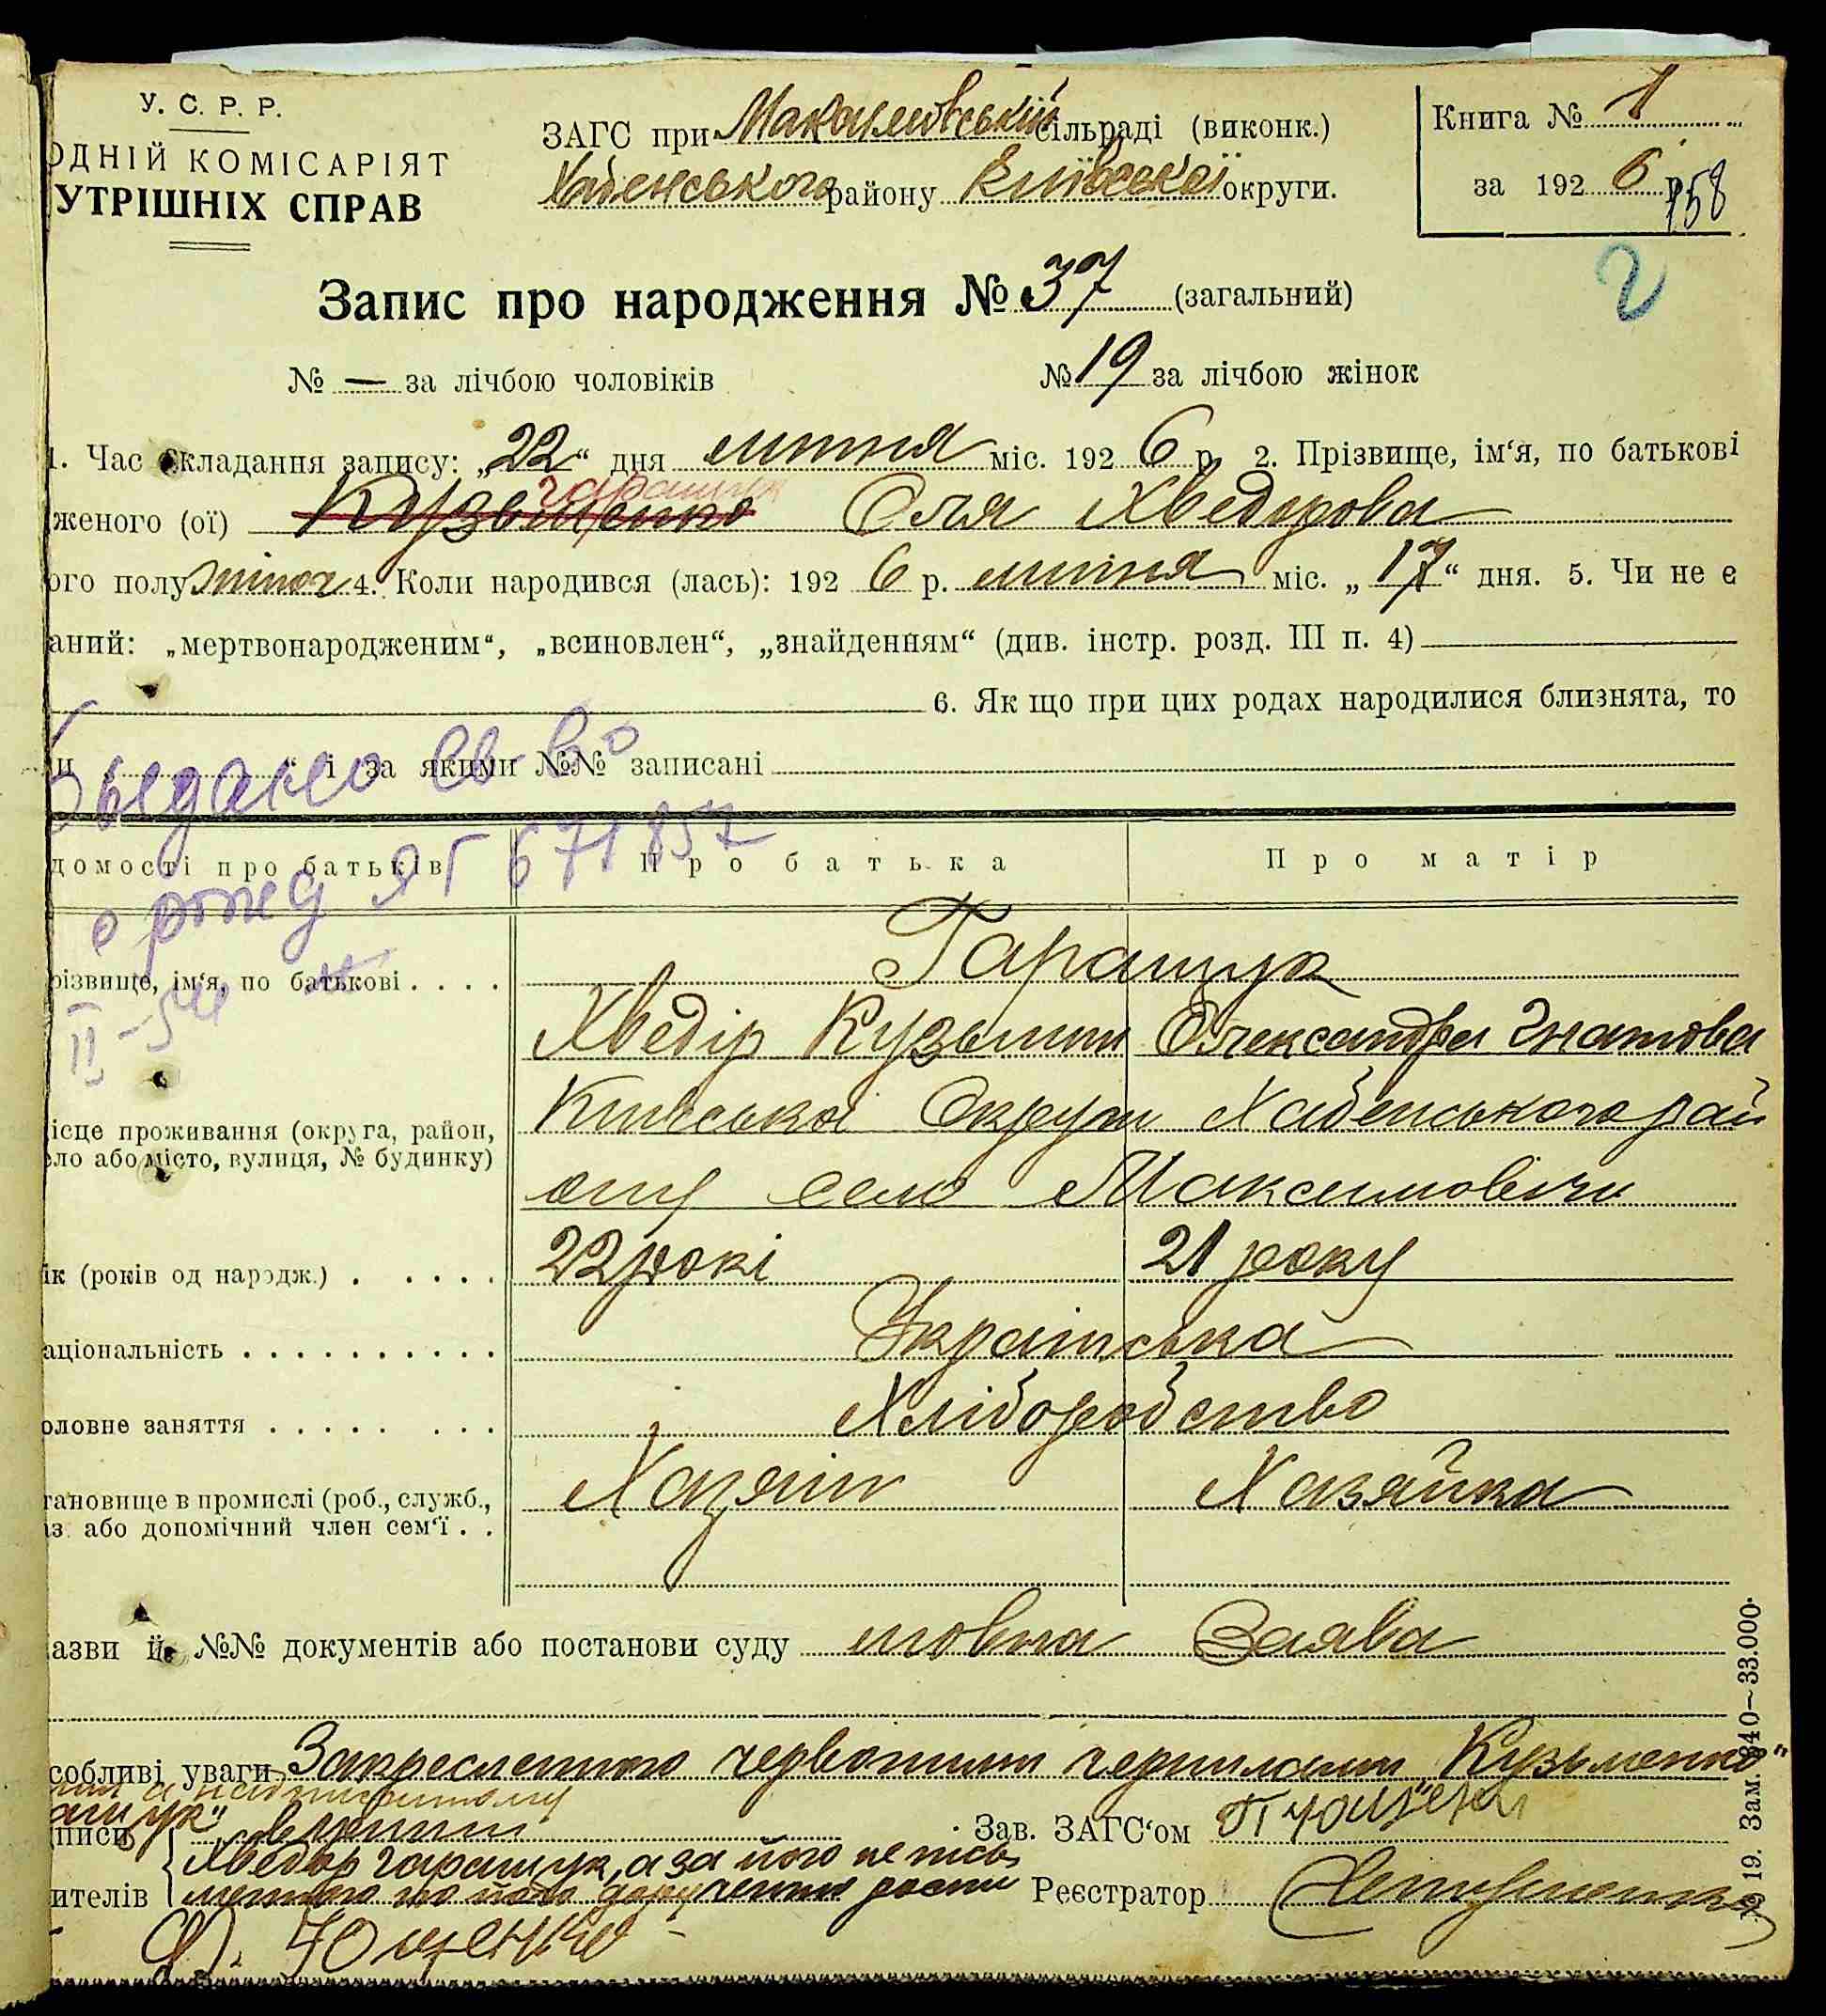 У. С. Р. Р.
ОДНІЙ КОМІСАРІЯТ
УТРІШНІХ СПРАВ
ЗАГС при сільраді (виконк.)
Хабенського району Київської округи.
Книга № 1
за 192 6 р.
158
2
Запис про народження № 37 (загальний)
№ — за лічбою чоловіків № 19 за лічбою жінок
1. Час складання запису: „22“ дня липня міс. 192 6 р. 2. Прізвище, ім‘я, по батькові
гаращук
женого (ої) Кузьменко Оля Хведорова
ого полу жіноч 4. Коли народився (лась): 192 6 р. липня міс. „17“ дня. 5. Чи не є
аний: „мертвонародженим“, „всиновлен“, „знайденням“ (див. інстр. розд. III п. 4)
6. Як що при цих родах народилися близнята, то
и “ і за якими №№ записані
Выдано св-во
о рожд ЯГ 671857
II-54
домості про батьків Про батька Про матір
різвище, ім‘я, по батькові . . . . Гаращук
Хведір Кузьмин Олександра Гнатова
ісце проживання (округа, район,
ело або місто, вулиця, № будинку)
Київської Округи Хабенського рай
ону село Максимовичи
ік (років од народж.) . . . . . 22 рокі 21 року
аціональність . . . . . . . . . . Українська
оловне заняття . . . . . . . . Хліборобство
тановище в промислі (роб., служб.,
аз. або допомічний член сем‘ї . .
Хазяін Хазяйка
азви й №№ документів або постанови суду мовна Заява
собливі уваги Закресленого червоними чернилами „Кузьменко“
а надписаному
ащук“ вірити
дписи Зав. ЗАГС‘ом
Хведор гаращук, а за його непись
ителів менного по його доручению роспи Реєстратор
Ющенко
№ 19. Зам. 840—33.000.